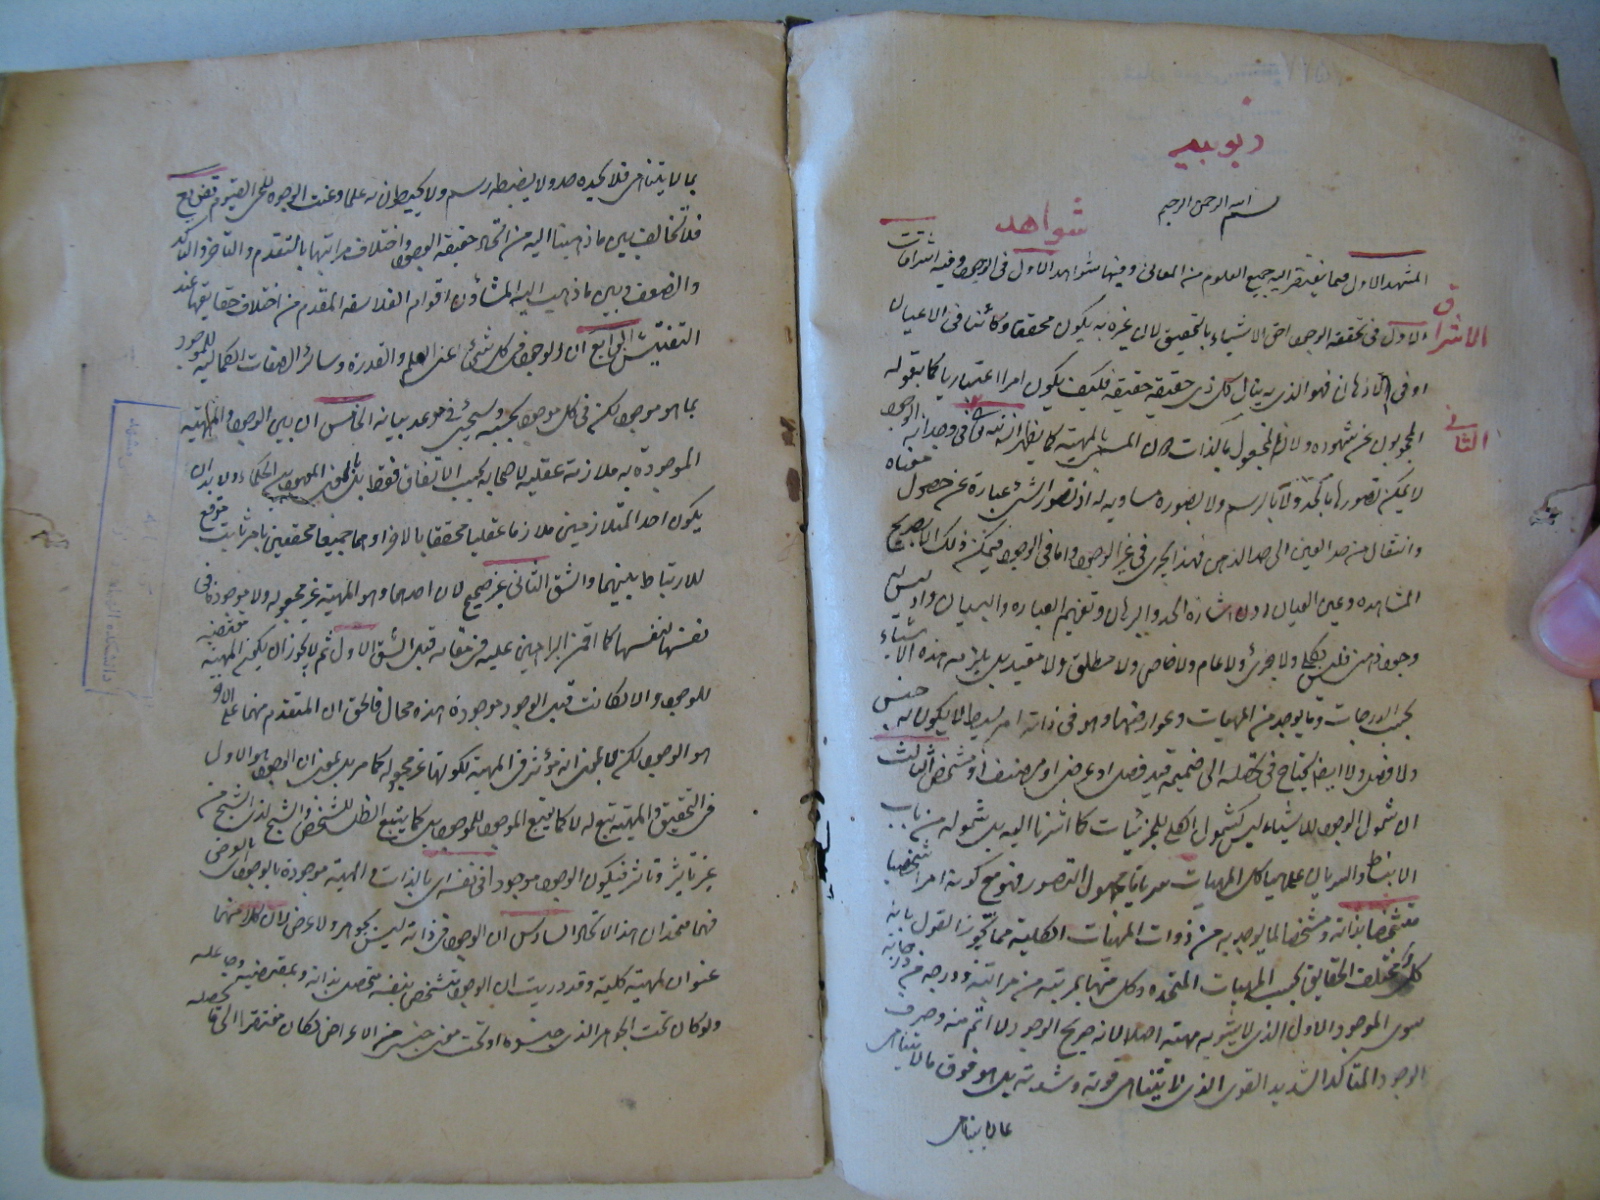 ربوبيه
بسم الله الرحمن الرحيم
شواهد
المشهد الاول فيما يفتقر اليه جميع العلوم من المعانى وفيها شواهد الاول فى الوجود وفيه اشراقات
الاشراق
الاول فى تحققه الوجود احق الاشياء بالتحقيق لان غيره به يكون متحققا وكائنا فى الاعيان
او فى الاذهان فهو الذى به ينال كل ذى حقيقة حقيقته فكيف يكون امرا اعتباريا كما يقوله
المحجوبون عن شهوده ولانه المجعول بالذات دون المسمى بالمهية كما يظهر انشاء الله
الثانى فى وجدانه الوجود
لا يمكن تصورها بالحد ولا بالرسم ولا بصورة مساوية له اذ تصور الشئ عبارة عن حصول معناه
وانتقاله من حد العين الى حد الذهن فهذا يجرى فى غير الوجود واما فى الوجود فلا يمكن ذلك الا بصريح
المشاهدة وعين العيان دون اشارة الحد والبرهان وتفهيم العبارة والبيان واذ ليس له
وجود ذهنى فليس بكلى ولا جزئى ولا عام ولا خاص ولا مطلق ولا مقيد بل يلزمه هذه الاشياء
بحسب الدرجات وما يوجد من المهيات وعوارضها وهو فى ذاته امر بسيط لا يكون له جنس
ولا فصل ولا ايضا يحتاج فى تحصله الى ضميمة قيد فصلى او عرضى او مصنف او مشخص الثالث
ان شمول الوجود للاشياء ليس كشمول الكلى للجزئيات كما اشرنا اليه بل شموله من باب
الانبساط والسريان على هياكل المهيات سريانا مجهول التصور فهو مع كونه امرا شخصيا
متشخصا بذاته ومشخصا لما يوجد به من ذوات المهيات الكلية مما يجوز القول بانه
مختلف الحقايق بحسب المهيات المتحده كل منها بمرتبة من مراتبه ودرجة من درجاته
سوى الموجود الاول الذى لا يشوبه مهية اصلا لانه صريح الوجود لا اتم منه وصرف
الوجود المتاكد الشديد القوى الذى لا يتناهى قوته وشدته بل هو فوق ما لا يتناهى
بما لا يتناهى
بما لا يتناهى فلا يحده حد ولا يضبطه رسم ولا يحيطون به علما وعنت الوجوه للحى القيوم تفريع
فلا تخالف بين ما ذهبنا اليه من اتحاد حقيقة الوجود واختلاف مراتبها بالتقدم والتاخر والتاكد
والضعف وبين ما ذهب اليه المشاؤن اقوام الفلاسفه المقدم من اختلاف حقايقها عند
التفتيش الرابع ان الوجود فى كل شئ عين العلم والقدرة وسائر الصفات الكمالية للموجود
بما هو موجود لكن فى كل موجود بحسبه وسيجئ فى موعد بيانه الخامس ان بين الوجود والمهية
الموجودة به ملازمة عقلية لا صحابه بحسب الاتفاق فقط بل بالمعنى المعهود بين الحكماء ولا بد ان
يكون احد المتلازمين ملازما عقليا محققا بالاخر او هما جميعا محققين بامر ثابت موقع
للارتباط بينهما والشق الثانى غير صحيح لان احدهما وهو المهية غير مجعولة ولا موجودة فى
نفسها لنفسها كما اقمنا البراهين عليه فى مقامه فبقى الشق الاول ثم لا يجوز ان يكون المهية مقتضية
للوجود والا لكانت قبل الوجود موجودة هذه محال فالحق ان المتقدم منهما على الاخر
هو الوجود لكن لا بمعنى انه مؤثر فى المهية لكونها غير مجعولة كما مر بل بمعنى ان الوجود هو الاول
فى التحقيق والمهية تبع له لا كما يتبع الموجود للموجود بل كما يتبع الظل للشخص والشبح لذى الشبح من
غير تاثير وتاثر فيكون الوجود موجودا فى نفسه اى بالذات والمهية موجودة بالوجود اى بالعرض
فهما متحدان هذا الاتحاد السادس ان الوجود فى ذاته ليس بجوهر ولا عرض لان كلا منهما
عنوان لمهية كلية وقد دريت ان الوجود متشخص بنفسه متحصل بذاته وبمقتضيه وجاعله
ولو كان تحت الجوهر الذى جنسوه او تحت معنى جنسى من الاعراض لكان مفتقرا الى ما تحصله